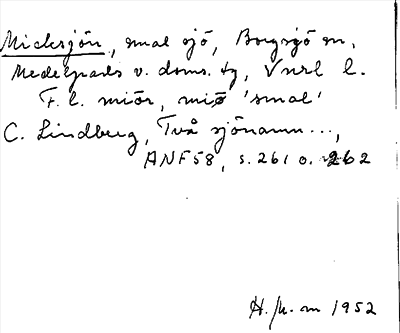 Micksjön, smal sjö, Borgsjö sn,
Medelpads v. doms. tg, Vnrl l.
F. l. miór, miǫ 'smal'
C. Lindberg, Två sjönamn...,
ANF 58, s. 261 o. 262
H. 1952